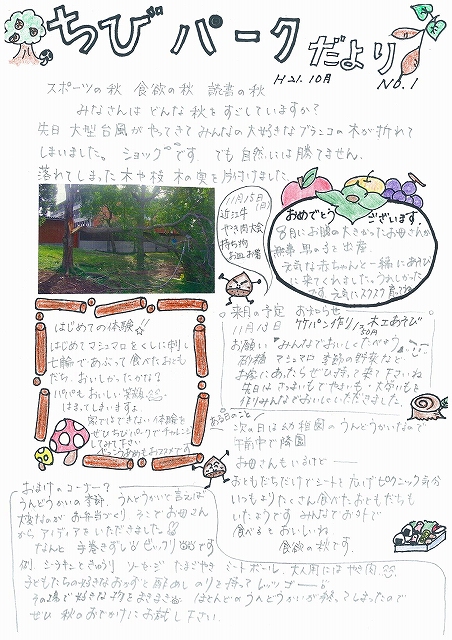 ちびパークだより
H21.10月
NO.1
スポーツの秋 食欲の秋 読書の秋
みなさんは どんな秋をすごしていますか?
先日 大型台風が やってきて みんなの 大好きな ブランコの木が 折れて
しまいました。ショックです でも 自然には勝てません。
落れてしまった 木や枝 木の実を 片付けました。
近江牛
やき肉大会
持ち物
お皿 お箸
おめでとう ございます
8月にお腹の大きかったお母さんが
無事 男の子を 出産
元気な赤ちゃんと一緒にあそび
に来てくれました。うれしかった
です 元気にスクスク育てね
はじめての体験!!
はじめて マシュマロを くしに 刺し
七輪であぶって食べた おとも
だち。おいしかったかな?
はまってしまいます。
家ではできない体験を
ぜひちびパークでチャレンジ
してみて下さい
来月の予定 お知らせ
11月13日 竹パン作り/50円 木工あそび
お願い みんなでおいしくたべよう
砂糖 マシュマロ 季節の野菜など
ぜひ持って来て下さいね
作りみんなでおいしくいただきました。
ある日のこと
次の日は幼稚園のうんどうかいなので
午前中で降園
お母さんもいるけど――
おともだちだけでシートを広げてピクニック気分
いつもより たくさん食べたおともだちも
いたようです みんなでお外で
食べると おいしいね
食欲の秋です。
おまけのコーナー?
うんどうかいの季節。うんどうかいと言えば
大変なのが お弁当づくり そこでお母さん
から アイディアを いただきました。!!
なんと 手巻きずしが ビックリです
例. シーチキンときゅうり ソーセージ たまごやき ミートボール。大人用には やき肉
子どもたちの好きなおかずと 酢めし のりを持って レッツゴー
その場で好きな物を まきまき ほとんどの うんどうかいが 終ってしまったので
ぜひ 秋のおでかけに お試し下さい。